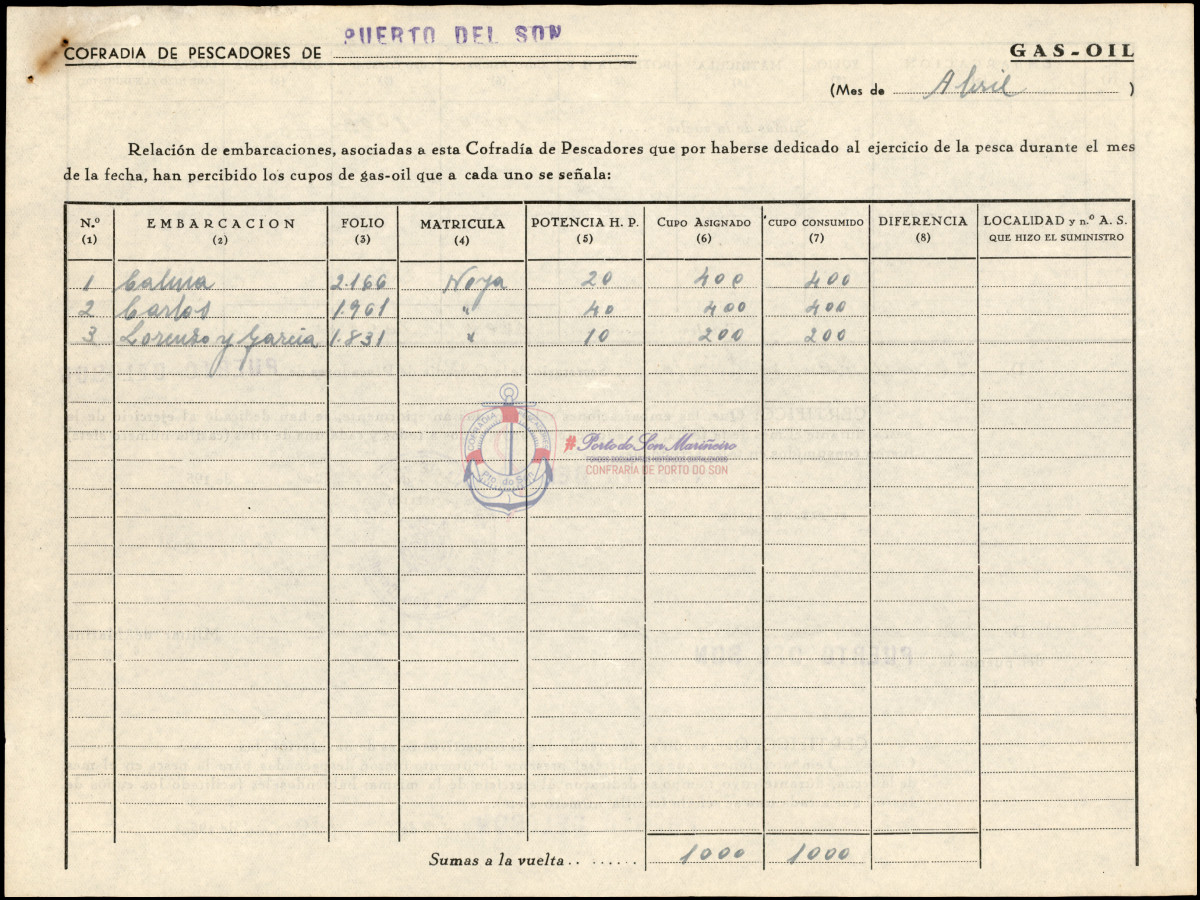 COFRADIA DE PESCADORES DE PUERTO DEL SON
GAS-OIL
(Mes de Abril )
Relación de embarcaciones, asociadas a esta Cofradía de Pescadores que por haberse dedicado al ejercicio de la pesca durante el mes
de la fecha, han percibido los cupos de gas-oil que a cada uno se señala:
N.º EMBARCACION FOLIO MATRICULA POTENCIA H. P. CUPO ASIGNADO CUPO CONSUMIDO DIFERENCIA LOCALIDAD y n.º A. S.
(1) (2) (3) (4) (5) (6) (7) (8) QUE HIZO EL SUMINISTRO
1 Calma 2.166 Noya 20 400 400
2 Carlos 1.961 " 40 400 400
3 Lorenzo y García 1.831 " 10 200 200
COFRADIA PESCADORES
Pto. do Son
#Porto do Son Mariñeiro
FONDOS DOCUMENTAIS HISTÓRICOS DIXITALIZADOS
CONFRARÍA DE PORTO DO SON
Sumas a la vuelta.. ...... 1000 1000